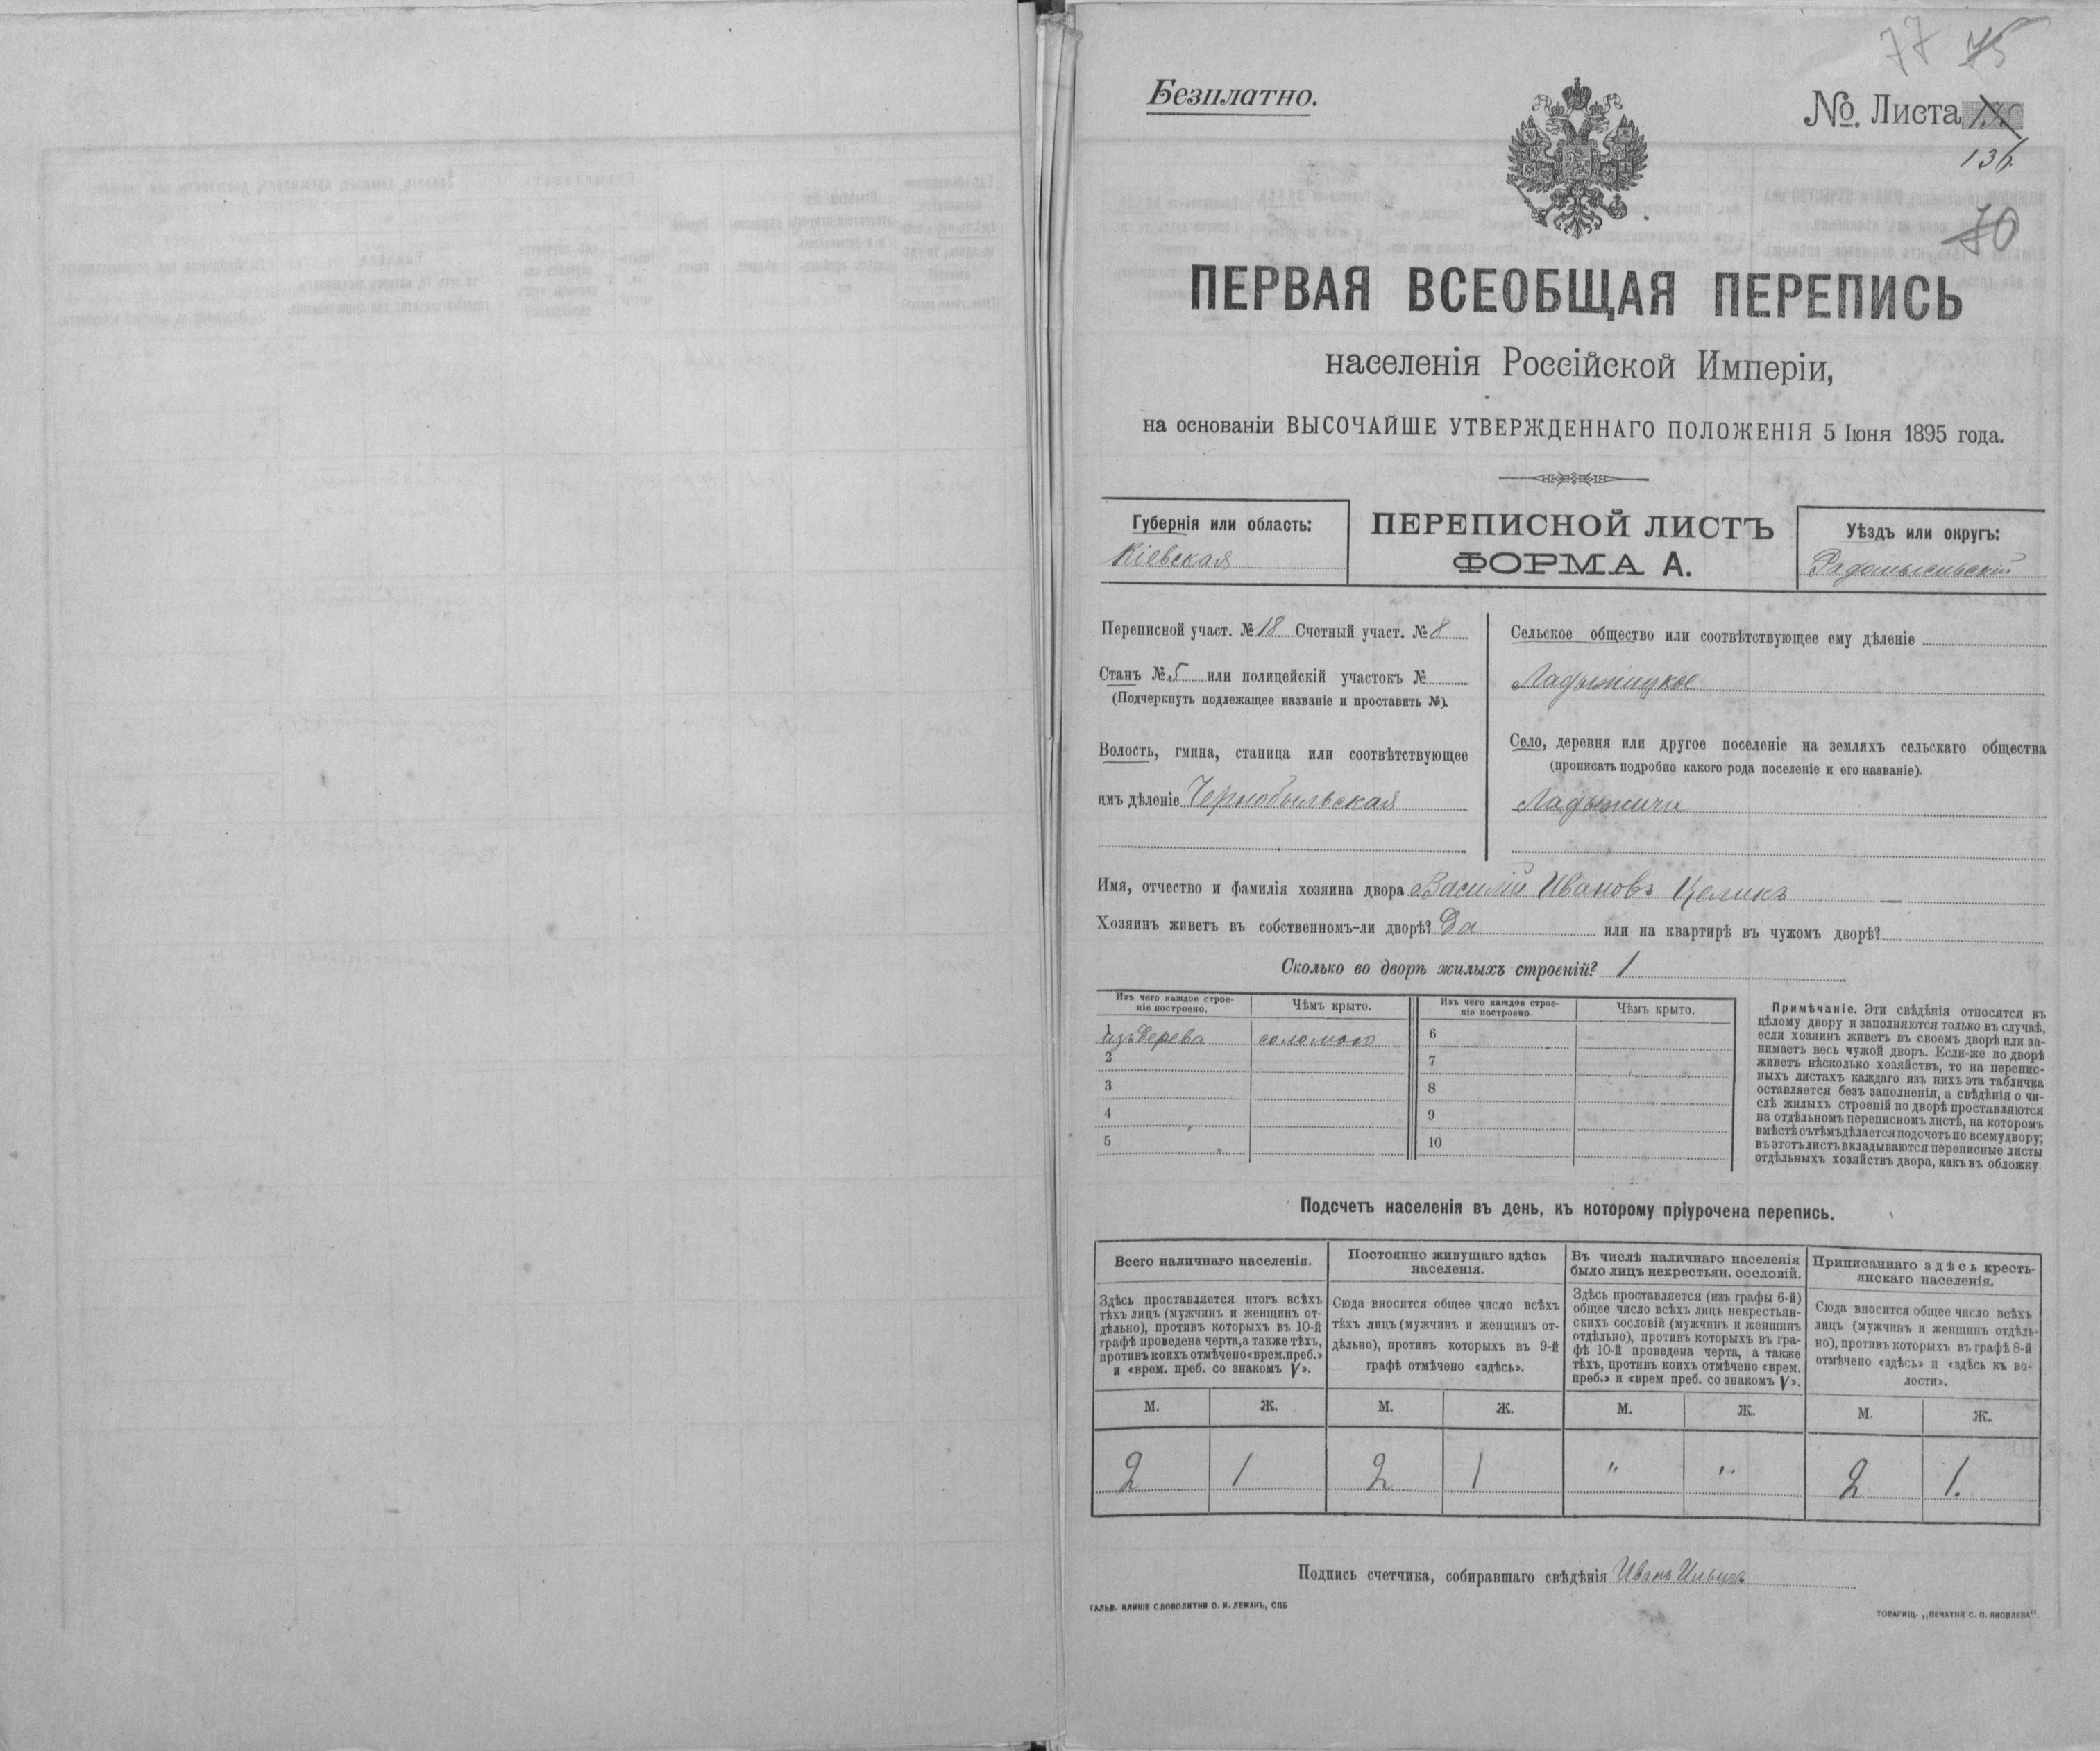 77 75
Безплатно.
№. Листа
136.
70
ПЕРВАЯ ВСЕОБЩАЯ ПЕРЕПИСЬ
населенія Россійской Имперіи,
на основаніи ВЫСОЧАЙШЕ УТВЕРЖДЕННАГО ПОЛОЖЕНІЯ 5 Іюня 1895 года.
Губернія или область:
Кіевская
ПЕРЕПИСНОЙ ЛИСТЪ
ФОРМА А.
Уѣздъ или округъ:
Радомысльскій
Переписной участ. № 18 Счетный участ. № 8
Станъ № 5 или полицейскій участокъ №
(Подчеркнуть подлежащее названіе и проставить №).
Волость, гмина, станица или соотвѣтствующее
имъ дѣленіе Чернобыльская
Сельское общество или соотвѣтствующее ему дѣленіе
Ладыжицкое
Село, деревня или другое поселеніе на земляхъ сельскаго общества
(прописать подробно какого рода поселеніе и его названіе).
Ладыжичи
Имя, отчество и фамилія хозяина двора Василій Ивановъ Целикъ
Хозяинъ живетъ въ собственномъ-ли дворѣ? Да или на квартирѣ въ чужомъ дворѣ?
Сколько во дворѣ жилыхъ строеній? 1
Изъ чего каждое строе-
ніе построено.
Чѣмъ крыто.
Изъ чего каждое строе-
ніе построено.
Чѣмъ крыто.
1 изъ дерева соломою 6
2 7
3 8
4 9
5 10
Примѣчаніе. Эти свѣдѣнія относятся къ
цѣлому двору и заполняются только въ случаѣ,
если хозяинъ живетъ въ своемъ дворѣ или за-
нимаетъ весь чужой дворъ. Если-же во дворѣ
живетъ нѣсколько хозяйствъ, то на перепис-
ныхъ листахъ каждаго изъ нихъ эта табличка
оставляется безъ заполненія, а свѣдѣнія о чи-
слѣ жилыхъ строеній во дворѣ проставляются
на отдѣльномъ переписномъ листѣ, на которомъ
вмѣстѣ сътѣмъ дѣлается подсчетъ по всему двору;
въ этотъ листъ вкладываются переписные листы
отдѣльныхъ хозяйствъ двора, какъ въ обложку.
Подсчетъ населенія въ день, къ которому пріурочена перепись.
Всего наличнаго населенія.
Здѣсь проставляется итогъ всѣхъ
тѣхъ лицъ (мужчинъ и женщинъ от-
дѣльно), противъ которыхъ въ 10-й
графѣ проведена черта, а также тѣхъ,
противъ коихъ отмѣчено «врем. преб.»
и «врем. преб. со знакомъ V».
М. Ж.
2 1
Постоянно живущаго здѣсь
населенія.
Сюда вносится общее число всѣхъ
тѣхъ лицъ (мужчинъ и женщинъ от-
дѣльно), противъ которыхъ въ 9-й
графѣ отмѣчено «здѣсь».
М. Ж.
2 1
Въ числѣ наличнаго населенія
было лицъ некрестьян. сословій.
Здѣсь проставляется (изъ графы 6-й)
общее число всѣхъ лицъ некрестьян-
скихъ сословій (мужчинъ и женщинъ
отдѣльно), противъ которыхъ въ гра-
фѣ 10-й проведена черта, а также
тѣхъ, противъ коихъ отмѣчено «врем.
преб.» и «врем преб. со знакомъ V».
М. Ж.
" "
Приписаннаго здѣсь кресть-
янскаго населенія.
Сюда вносится общее число всѣхъ
лицъ (мужчинъ и женщинъ отдѣль-
но), противъ которыхъ въ графѣ 8-й
отмѣчено «здѣсь» и «здѣсь къ во-
лости».
М. Ж.
2 1.
Подпись счетчика, собиравшаго свѣдѣнія Иванъ
ГАЛЬВ. КЛИШЕ СЛОВОЛИТНИ О. И. ЛЕМАНЪ, СПБ
ТОВАРИЩ. „ПЕЧАТНЯ С. П. ЯКОВЛЕВА".